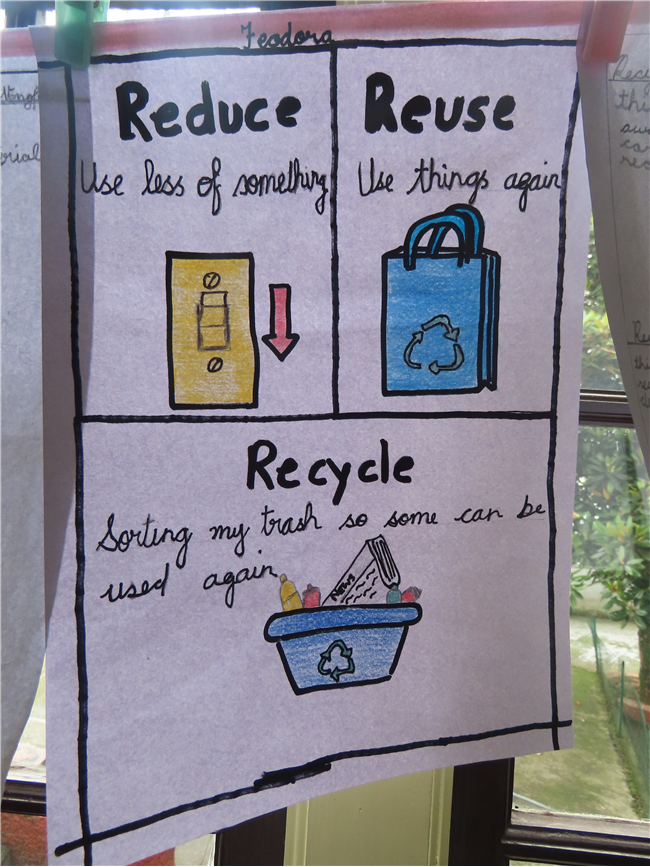 Feodora
Reduce
Use less of something
Reuse
Use things again
Recycle
Sorting my trash so some can be
used again
NEWS